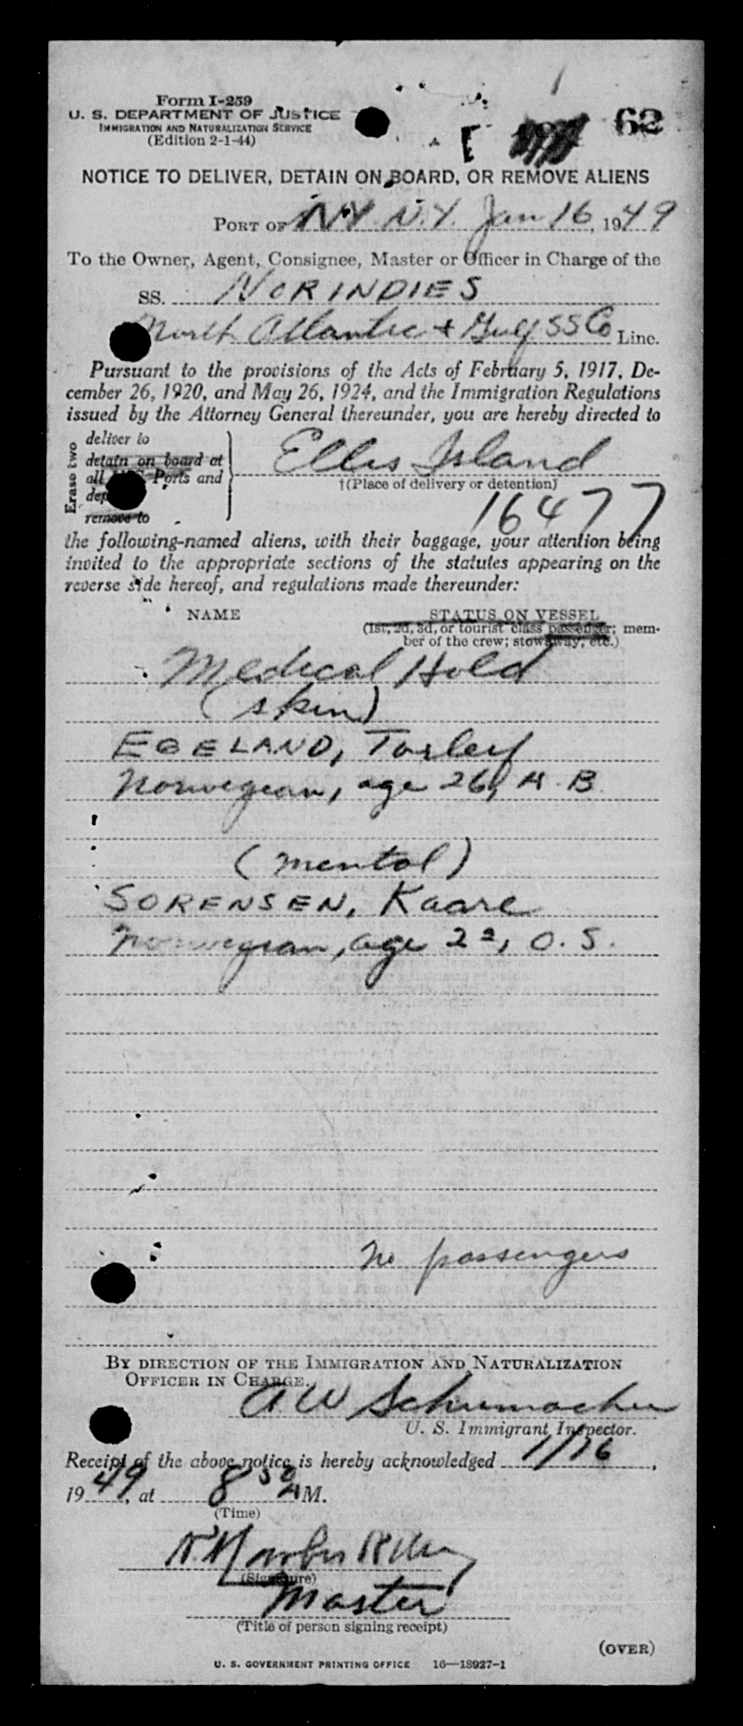 Form I-259
U. S. DEPARTMENT OF JUSTICE
IMMIGRATION AND NATURALIZATION SERVICE
(Edition 2-1-44)
62
NOTICE TO DELIVER, DETAIN ON BOARD, OR REMOVE ALIENS
PORT OF N.Y. N.Y. Jan 16, 1949
To the Owner, Agent, Consignee, Master or Officer in Charge of the
SS. NORINDIES
North Atlantic & Gulf SS Co Line.
Pursuant to the provisions of the Acts of February 5, 1917, De-
cember 26, 1920, and May 26, 1924, and the Immigration Regulations
issued by the Attorney General thereunder, you are hereby directed to
Erase two
deliver to
detain on board at
all Ports and
remove to
Ellis Island
†(Place of delivery or detention)
16477
the following-named aliens, with their baggage, your attention being
invited to the appropriate sections of the statutes appearing on the
reverse side hereof, and regulations made thereunder:
NAME STATUS ON VESSEL
(1st, 2d, 3d, or tourist class passenger; mem-
ber of the crew; stowaway, etc.)
Medical Hold
(skin)
EGELAND, Torleif
Norwegian, age 26, A. B.
(mental)
SORENSEN, Kaare
Norwegian, age 22, O. S.
No passengers
BY DIRECTION OF THE IMMIGRATION AND NATURALIZATION
OFFICER IN CHARGE.
A W Schumacher
U. S. Immigrant Inspector.
Receipt of the above notice is hereby acknowledged 1/16,
1949, at 8 30 AM.
(Time)
(Signature)
Master
(Title of person signing receipt)
(OVER)
U. S. GOVERNMENT PRINTING OFFICE 16—18927-1